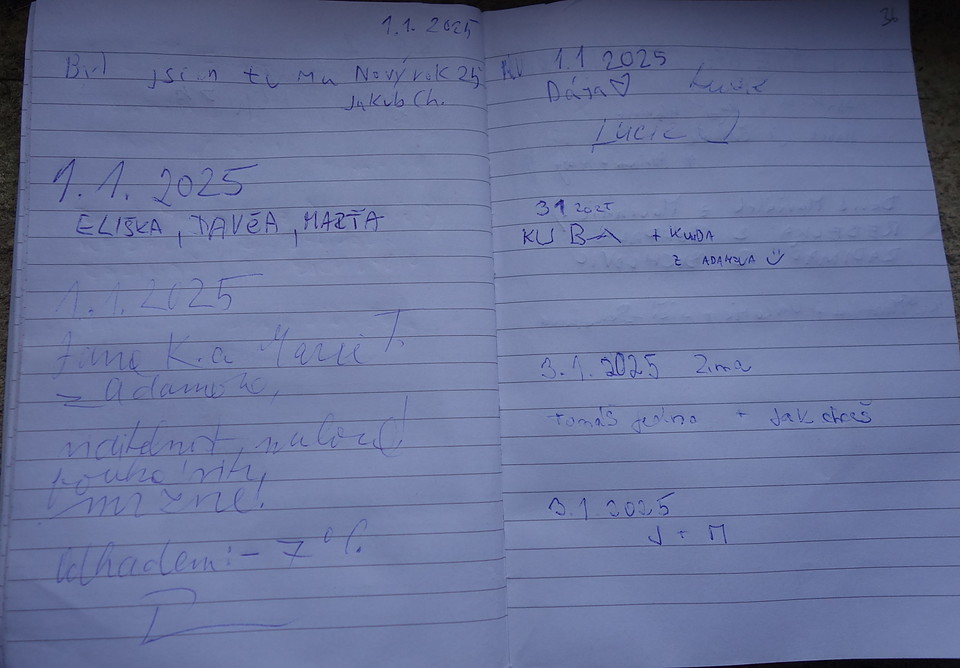 1.1. 2025
Byl jsem tu na Nový rok 25
Jakub Ch.
1.1. 2025
ELIŠKA, DAVČA, MARŤA
1.1.2025
Jana K. a Marie T.
z Adamova,
mrzne!
Odhadem: -7°C.
36
1.1 2025
Dája ♡ Lucie
Lucie
3 1 2025
KUBA + KUBA
Z ADAMOVA
3.1.2025 Zima
Tomáš jedina + Jak
3.1 2025
J + M